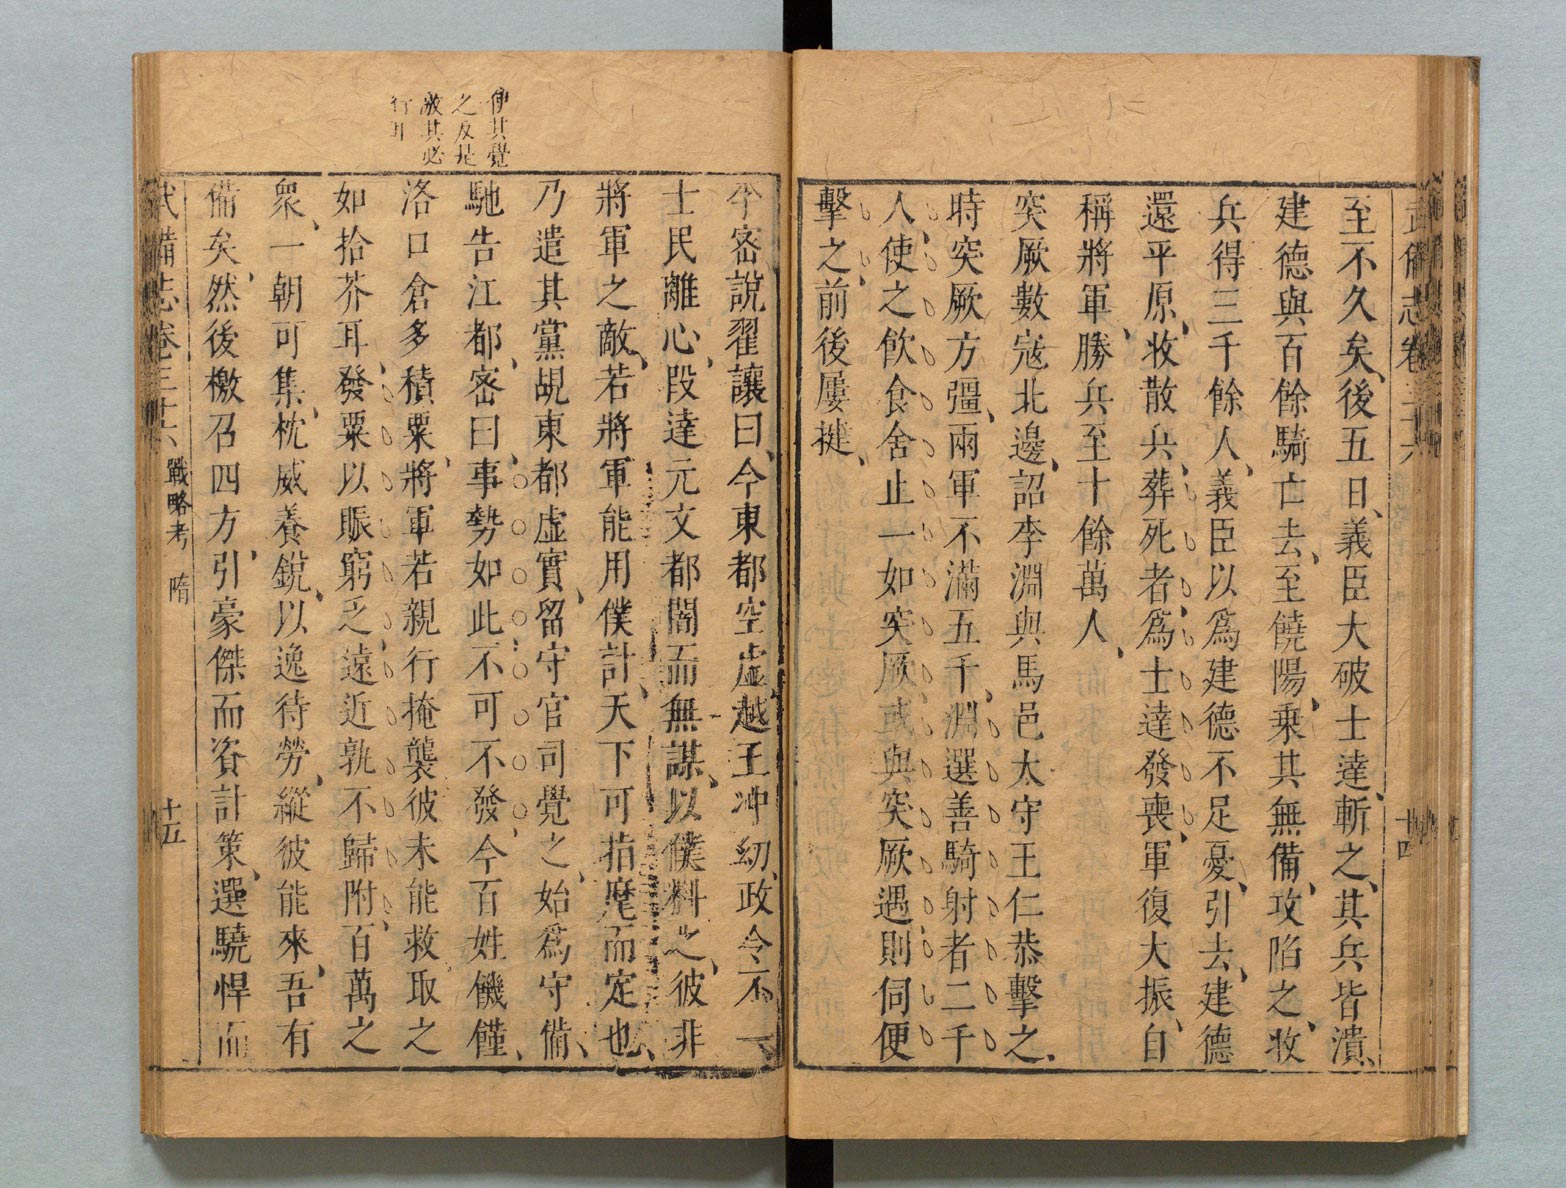 武備志卷三十六
十四
至不久矣、後五日、義臣大破士達、斬之、其兵皆潰、
建德與百餘騎亡去、至饒陽、乘其無備、攻陷之、收
兵得三千餘人、義臣以爲建德不足憂、引去、建德
還平原、收散兵、葬死者、爲士達發喪、軍復大振、自
稱將軍、勝兵至十餘萬人、
突厥數寇北邊、詔李淵與馬邑太守王仁恭擊之、
時突厥方彊、兩軍不滿五千、淵選善騎射者二千
人、使之飮食舍止一如突厥、或與突厥遇、則伺便
擊之、前後屢捷、
俾其覺
之反是
敵其必
行耳
李密說翟讓曰、今東都空虛、越王冲幼、政令不一
士民離心、段達元文都闇而無謀、以僕料之、彼非
將軍之敵、若將軍能用僕計、天下可指麾而定也、
乃遣其黨覘東都虛實、留守官司覺之、始爲守備、
馳告江都、密曰、事勢如此、不可不發、今百姓饑饉、
洛口倉多積粟、將軍若親行掩襲、彼未能救、取之
如拾芥耳、發粟以賑窮乏、遠近孰不歸附、百萬之
衆、一朝可集、枕威養銳、以逸待勞、縱彼能來、吾有
備矣、然後檄召四方、引豪傑而資計策、選驍悍而
武備志卷三十六 戰略考 隋 十五